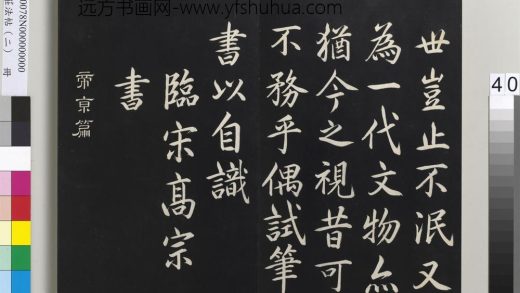 世豈止不泯又
為一代文物亦
猶今之視昔可
不務乎偶試筆
書以自識
臨宋高宗
書
帝京篇
遠方书画网-www.yfshuhua.com
法帖(二) 冊
0078N000000000
40